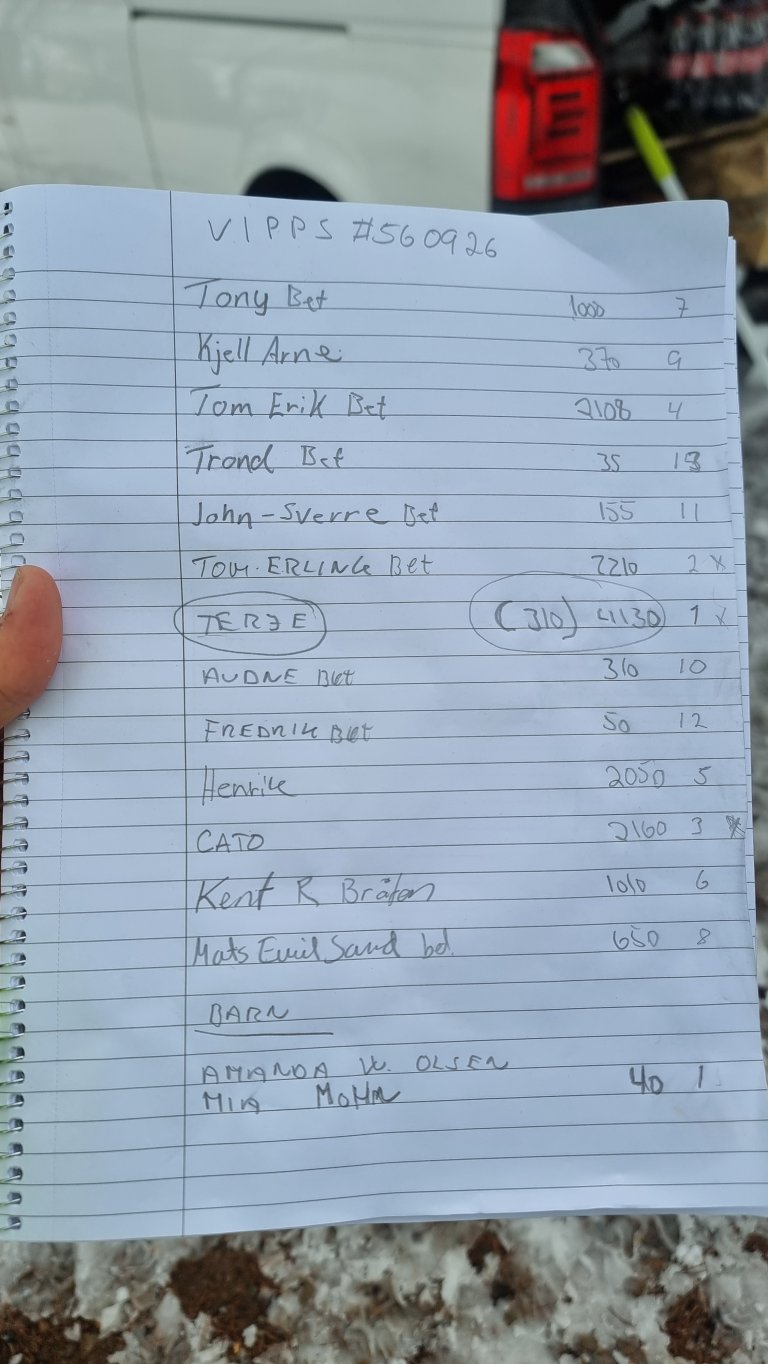 VIPPS #560926
Tony Bet 1000 7
Kjell Arne 370 9
Tom Erik Bet 2108 4
Trond Bet 35 13
John-Sverre Bet 155 11
TOM.ERLING Bet 2210 2 x
TERJE (310) 4130 1 x
AUDNE Bet 310 10
FREDRIK Bet 50 12
Henrik 2050 5
CATO 2160 3 x
Kent R Bråten 1010 6
Mats Emil Sand bet. 650 8
BARN
AMANDA W. OLSEN
MIA MOHN 40 1